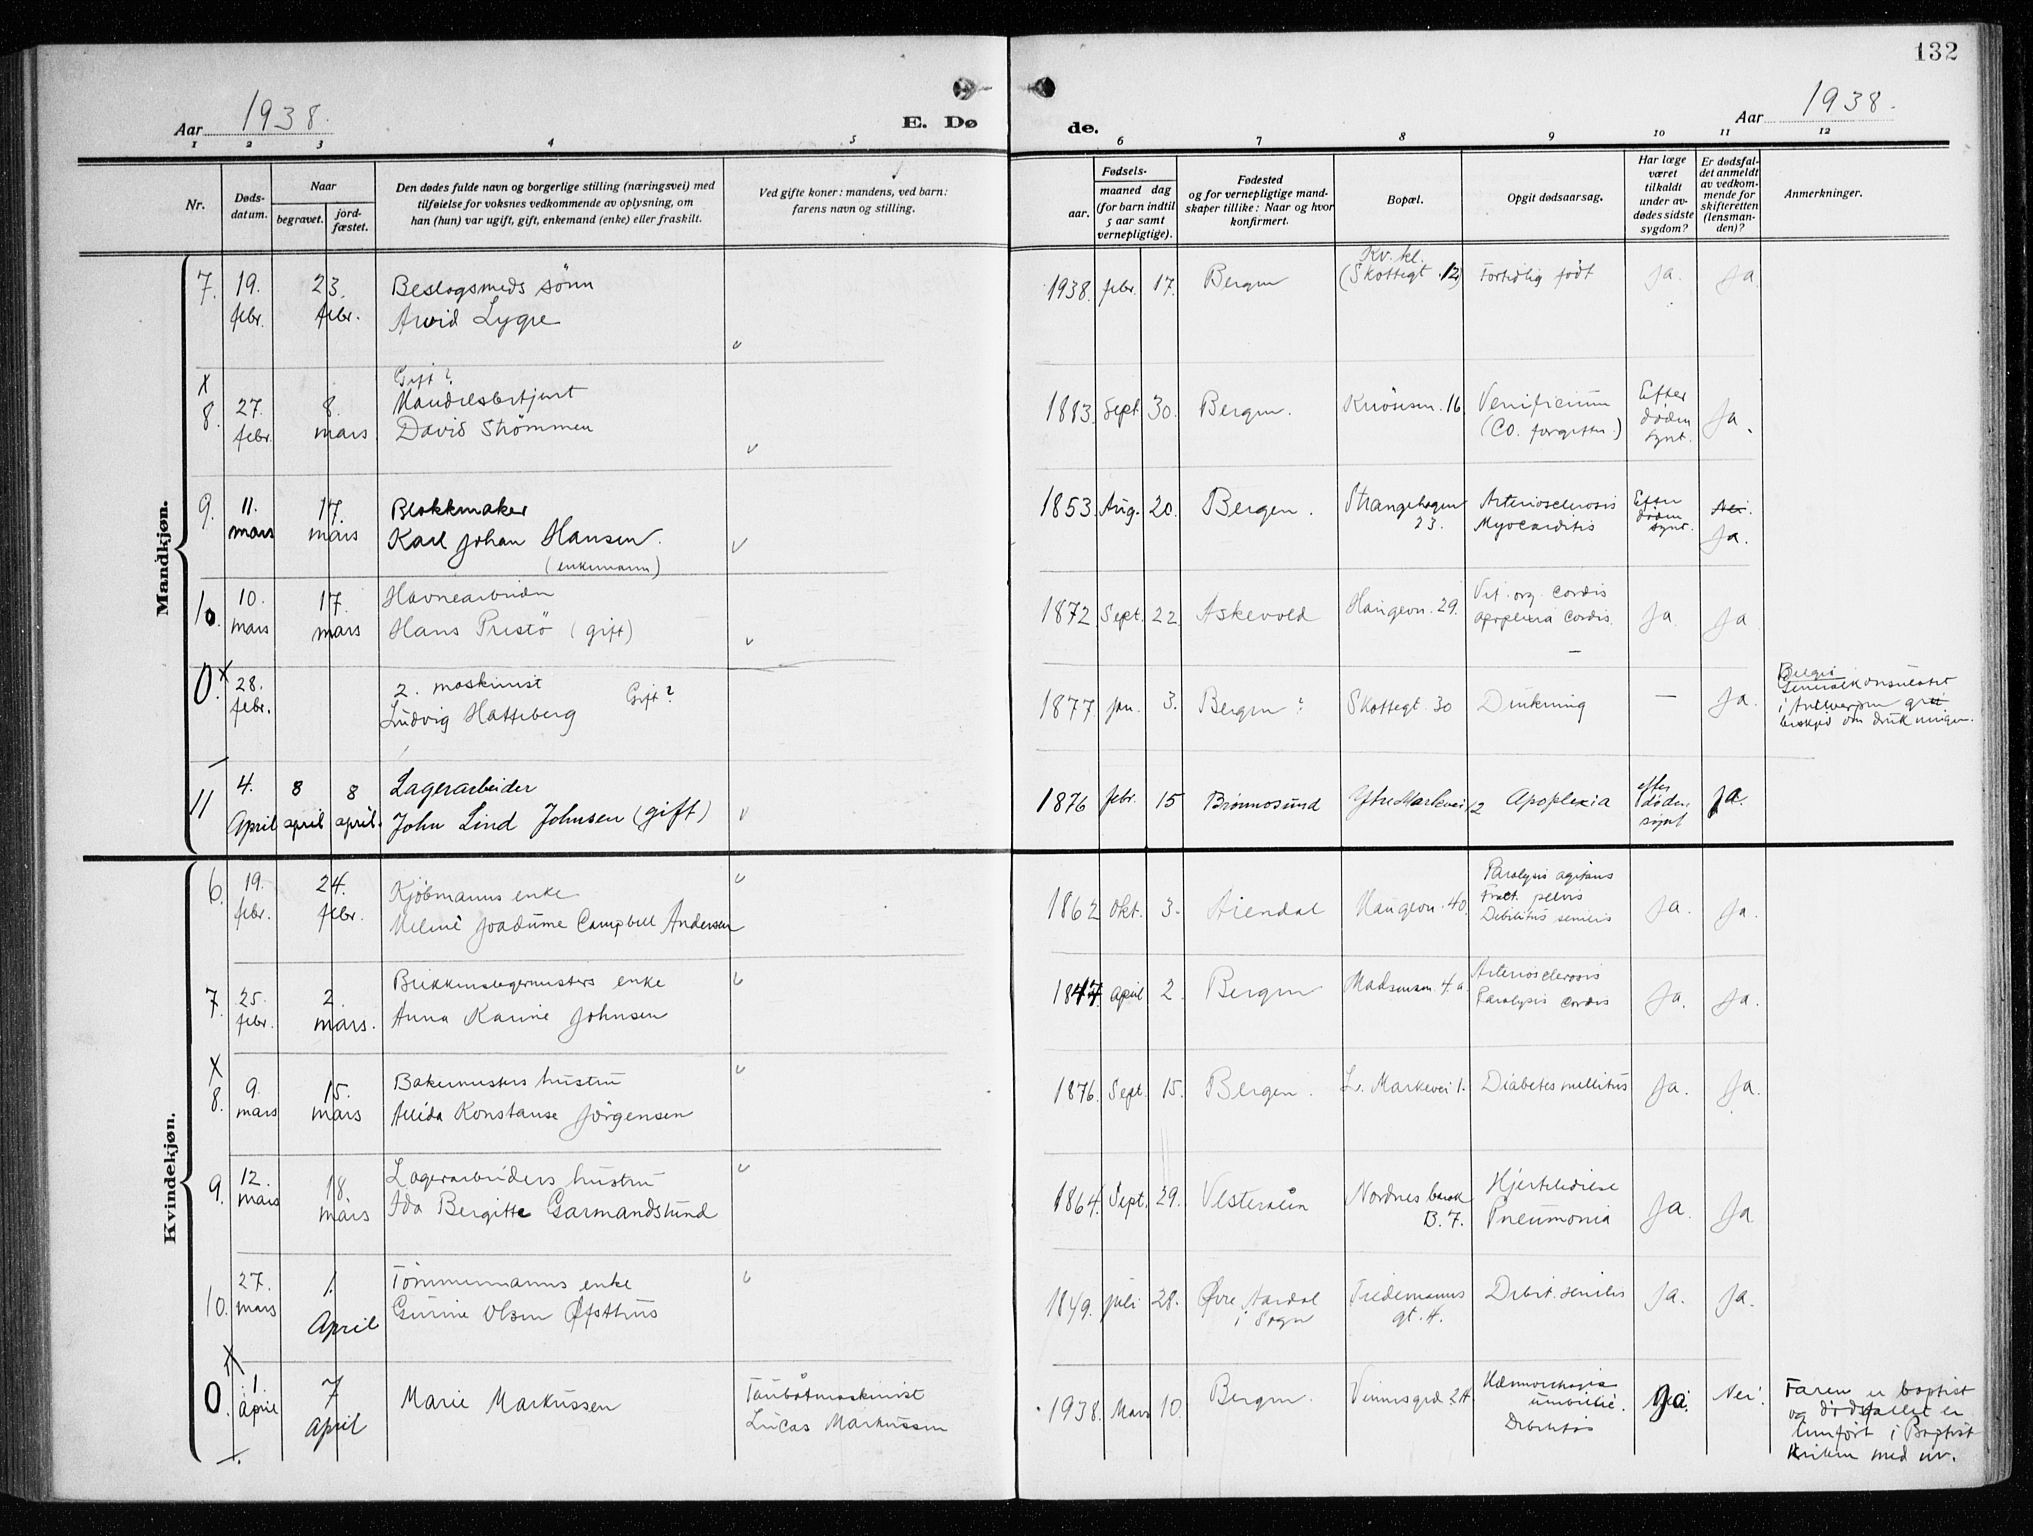 132
Aar 1938.
E. Dø
de.
Aar 1938.
1 2 3 4 5 6 7 8 9 10 11 12
Nr.
Døds-
datum.
Naar
begravet.
jord-
fæstet.
Den dødes fulde navn og borgerlige stilling (næringsvei) med
tilføielse for voksnes vedkommende av oplysning, om
han (hun) var ugift, gift, enkemand (enke) eller fraskilt.
Ved gifte koner: mandens, ved barn:
farens navn og stilling.
Fødsels-
aar.
maaned dag
(for barn indtil
5 aar samt
vernepligtige).
Fødested
og for vernepligtige mand-
skaper tillike: Naar og hvor
konfirmert.
Bopæl.
Opgit dødsaarsag.
Har læge
været
tilkaldt
under av-
dødes sidste
sygdom?
Er dødsfal-
det anmeldt
av vedkom-
mende for
skifteretten
(lensman-
den)?
Anmerkninger.
Mandkjøn.
7. 19. febr. 23. febr.
Beslagsmeds sønn
Arvid Lygre
1938. febr. 17. Bergen
Kv. kl.
(Skottegt. 12)
Fortidlig født
Ja. Ja
x
8. 27. febr. 8. mars
Gift?
Handelsbetjent
David Strømmen
1883. Sept. 30. Bergen. Knøsesm. 16
Venificium
(CO. forgiftn.)
Efter
døden
synt.
Ja.
9. 11. mars 17. mars
Blokkmaker
Karl Johan Hansen.
(enkemann)
1853. Aug. 20. Bergen.
Strangehagen
23.
Arteriosclerosis
Myocarditis
Efter
døden
synt.
Nei.
Ja.
10. 10. mars 17. mars
Havnearbeider
Hans Prestø (gift)
1872 Sept. 22 Askevold Haugevn. 29.
Vit. org. cordis
apoplexia cordis.
Ja Ja
0. x 28. febr.
2. maskinist
Ludvig Hatteberg
Gift?
1877. Jan. 3. Bergen? Skottegt. 30 Drukning — Ja.
Belgis
Generalkonsulatet
i Antwerpen gitt
beskjed om drukningen.
11 4. April 8 april 8 april.
Lagerarbeider
John Lind Johnsen (gift)
1876 febr. 15 Brønnøsund Ytre Markevei 12 Apoplexia
efter
døden
synt
Ja.
Kvindekjøn.
6. 19. febr. 24. febr.
Kjøbmanns enke
Meline Joadume Campbell Andersen
1862 Okt. 3. Arendal Haugevn. 40.
Paralysis agitans
Fract. pelvis
Debilitas senilis
Ja. Ja.
7. 25. febr. 2. mars.
Blikkenslagermesters enke
Anna Karine Johnsen
1847. april 2. Bergen Madsensm. 4. a
Arteriosclerosis
Paralysis cordis
Ja. Ja.
x
8. 9. mars 15. mars
Bakermesters hustru
Allida Konstanse Jørgensen
1876. Sept. 15. Bergen. L. Markevei 1. Diabetes mellitus Ja. Ja.
9. 12. mars 18. mars
Lagerarbeiders hustru
Ida Bergitte Garmandslund
1864. Sept. 29. Vesteraalen
Nordnes barak
B. 7.
Hjertelidelse
Pneumonia
Ja. Ja
10. 27. mars 1. April
Tømmermanns enke
Gurine Olsen Øfsthus
1849. juli 28.
Øvre Aardal
i Sogn
Tidemanns
gt. 4.
Debit. senilis
Ja. Ja.
x
0. 1. april 7 April
Marie Markussen
Taubåtmaskinist
Lucas Markussen
1938. Mars 10. Bergen.
Hæmorrhagia
umbilic.
Debilitas
Ja. Nei.
Faren er baptist
og dødsfallet er
innført i Baptist
kirken med nr.